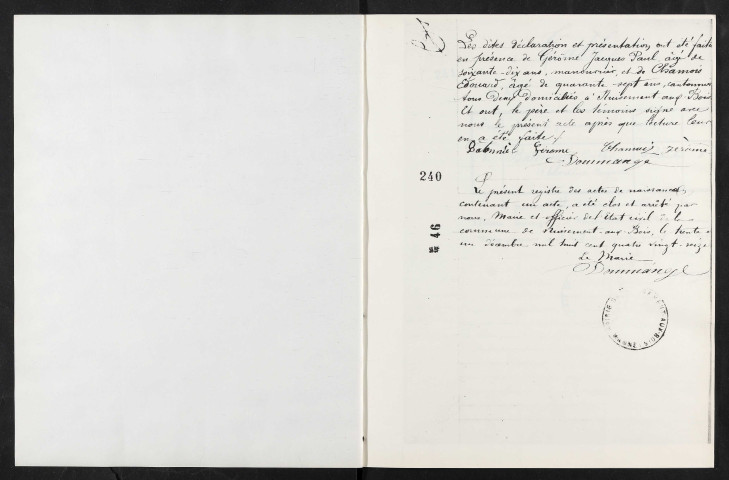 Les dites déclaration et présentation ont été faites
en présence de Gérôme Jacques Paul âgé de
soixante-dix ans, manouvrier, et de Chamois
Edouard, âgé de quarante-sept ans, cantonnier
tous deux domiciliés à Nuisement aux Bois
Et ont, le père et les témoins signé avec
nous le présent acte après que lecture leur
en a été faite
Gérome Chamois Jérôme
Doumange
240
Le présent registre des actes de naissances
contenant un acte, a été clos et arrêté par
nous, Maire et officier de l'état civil de la
commune de Nuisement-aux-Bois, le trente et
un décembre mil huit cent quatre vingt-seize
Le Maire
Doumange
46